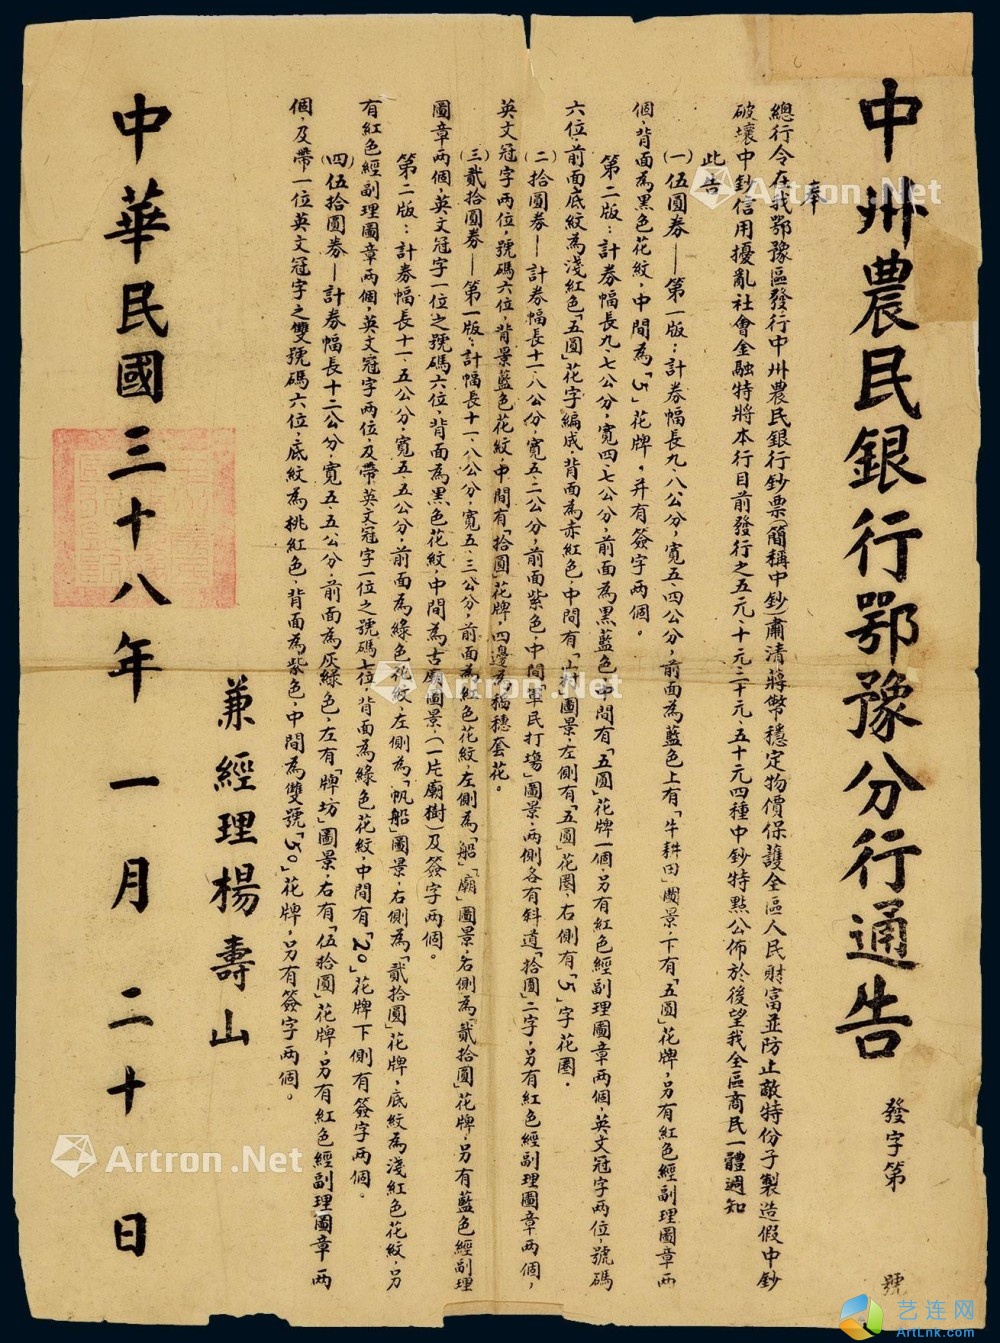 中州農民銀行鄂豫分行通告
發字第　號
奉
總行令在我鄂豫區發行中州農民銀行鈔票(簡稱中鈔)肅清蔣幣穩定物價保護全區人民財富並防止敵特份子製造假中鈔
破壞中鈔信用擾亂社會金融特將本行目前發行之五元、十元、二十元、五十元四種中鈔特點公佈於後望我全區商民一體週知
此告
(一)伍圓券——第一版：計券幅長九、八公分，寬五、四公分，前面為藍色上有「牛耕田」圖景，下有「五圓」花牌，另有紅色經副理圖章兩
個，背面為黑色花紋，中間為「5」花牌，并有簽字兩個。
第二版：計券幅長九、七公分，寬四、七公分，前面為黑藍色，中間有「五圓」花牌一個，另有紅色經副理圖章兩個，英文冠字兩位，號碼
六位，前面底紋為淺紅色「五圓」花字編成，背面為赤紅色，中間有「山村」圖景，左側有「五圓」花圈，右側有「5」字花圈。
(二)拾圓券——計券幅長十一、八公分，寬五、二公分，前面紫色，中間「軍民打場」圖景，兩側各有斜道「拾圓」二字，另有紅色經副理圖章兩個，
英文冠字兩位，號碼六位，背景藍色花紋，中間有「拾圓」花牌，四邊為稻穗套花。
(三)貳拾圓券——第一版：計幅長十一、八公分，寬五、三公分，前面為紅色花紋，左側為「船」「廟」圖景，右側為「貳拾圓」花牌，另有藍色經副理
圖章兩個，英文冠字一位之號碼六位，背面為黑色花紋，中間為古廟圖景，(一片廟樹)及簽字兩個。
第二版：計券幅長十一、五公分，寬五、五公分，前面為綠色花紋，左側為「帆船」圖景，右側為「貳拾圓」花牌，底紋為淺紅色花紋，另
有紅色經副理圖章兩個，英文冠字兩位，及帶英文冠字一位之號碼七位，背面為綠色花紋，中間有「20」花牌下側有簽字兩個。
(四)伍拾圓券——計券幅長十二公分，寬五、五公分，前面為灰綠色，左有「牌坊」圖景，右有「伍拾圓」花牌，另有紅色經副理圖章兩
個，及帶一位英文冠字之雙號碼六位，底紋為桃紅色，背面為紫色，中間為雙號「50」花牌，另有簽字兩個。
兼經理楊壽山
中華民國三十八年一月二十日
Artron.Net
Artron.Net
Artron.Net
Artron.Net
Artron.Net
艺连网
ArtLnk.com